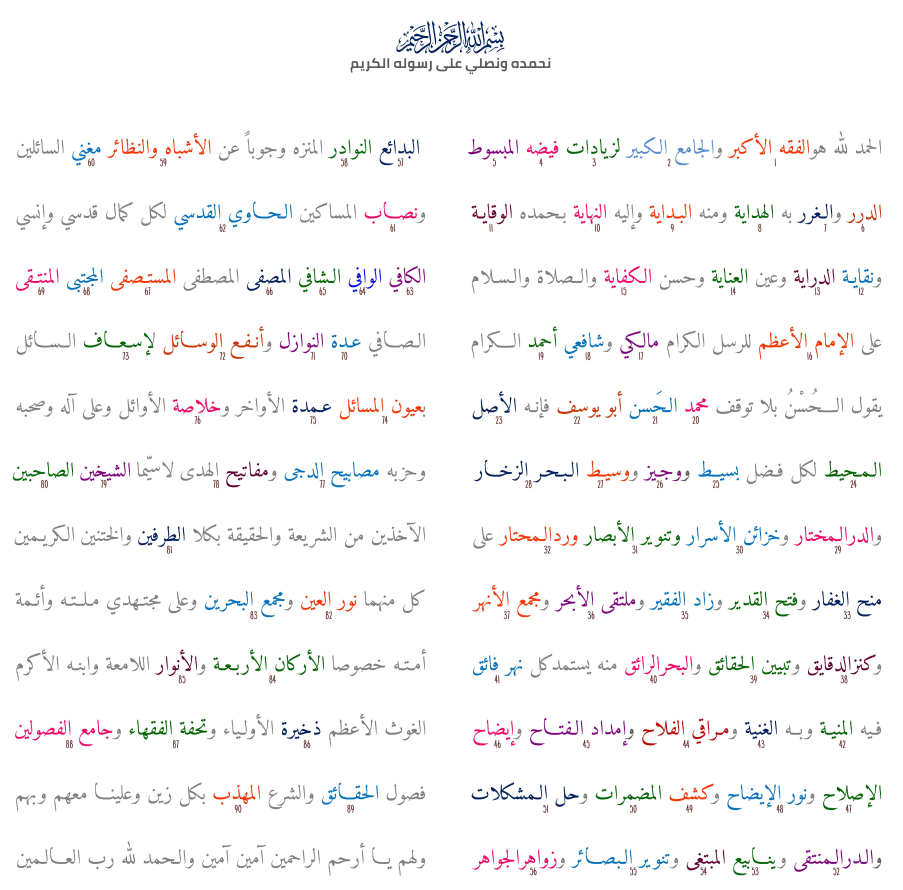 بسم الله الرحمن الرحيم
نحمده ونصلي على رسوله الكريم
الحمد لله هوالفقه الأكبر والجامع الكبير لزيادات فيضه المبسوط
1 2 3 4 5
الدرر والغرر به الهداية ومنه البداية وإليه النهاية بحمده الوقاية
6 7 8 9 10 11
ونقاية الدراية وعين العناية وحسن الكفاية والصلاة والسلام
12 13 14 15
على الإمام الأعظم للرسل الكرام مالكي وشافعي أحمد الكرام
16 17 18 19
يقول الحُسْنُ بلا توقف محمد الحَسن أبو يوسف فإنه الأصل
20 21 22 23
المحيط لكل فضل بسيط ووجيز ووسيط البحر الزخار
24 25 26 27 28
والدرالمختار وخزائن الأسرار وتنوير الأبصار وردالمحتار على
29 30 31 32
منح الغفار وفتح القدير وزاد الفقير وملتقى الأبحر ومجمع الأنهر
33 34 35 36 37
وكنزالدقايق وتبيين الحقائق والبحرالرائق منه يستمدكل نهر فائق
38 39 40 41
فيه المنية وبه الغنية ومراقي الفلاح وإمداد الفتاح وإيضاح
42 43 44 45 46
الإصلاح ونور الإيضاح وكشف المضمرات وحل المشكلات
47 48 49 50 51
والدرالمنتقى وينابيع المبتغى وتنوير البصائر وزواهرالجواهر
52 53 54 55 56
البدائع النوادر المنزه وجوباً عن الأشباه والنظائر مغني السائلين
57 58 59 60
ونصاب المساكين الحاوي القدسي لكل كمال قدسي وإنسي
61 62
الكافي الوافي الشافي المصفى المصطفى المستصفى المجتبى المنتقى
63 64 65 66 67 68 69
الصافي عدة النوازل وأنفع الوسائل لإسعاف السائل
70 71 72 73
بعيون المسائل عمدة الأواخر وخلاصة الأوائل وعلى آله وصحبه
74 75 76
وحزبه مصابيح الدجى ومفاتيح الهدى لاسيّما الشيخين الصاحبين
77 78 79 80
الآخذين من الشريعة والحقيقة بكلا الطرفين والختنين الكريمين
81
كل منهما نور العين ومجمع البحرين وعلى مجتهدي ملته وأئمة
82 83
أمته خصوصا الأركان الأربعة والأنوار اللامعة وابنه الأكرم
84 85
الغوث الأعظم ذخيرة الأولياء وتحفة الفقهاء وجامع الفصولين
86 87 88
فصول الحقائق والشرع المهذب بكل زين وعلينا معهم وبهم
89 90
ولهم يا أرحم الراحمين آمين آمين والحمد لله رب العالمين